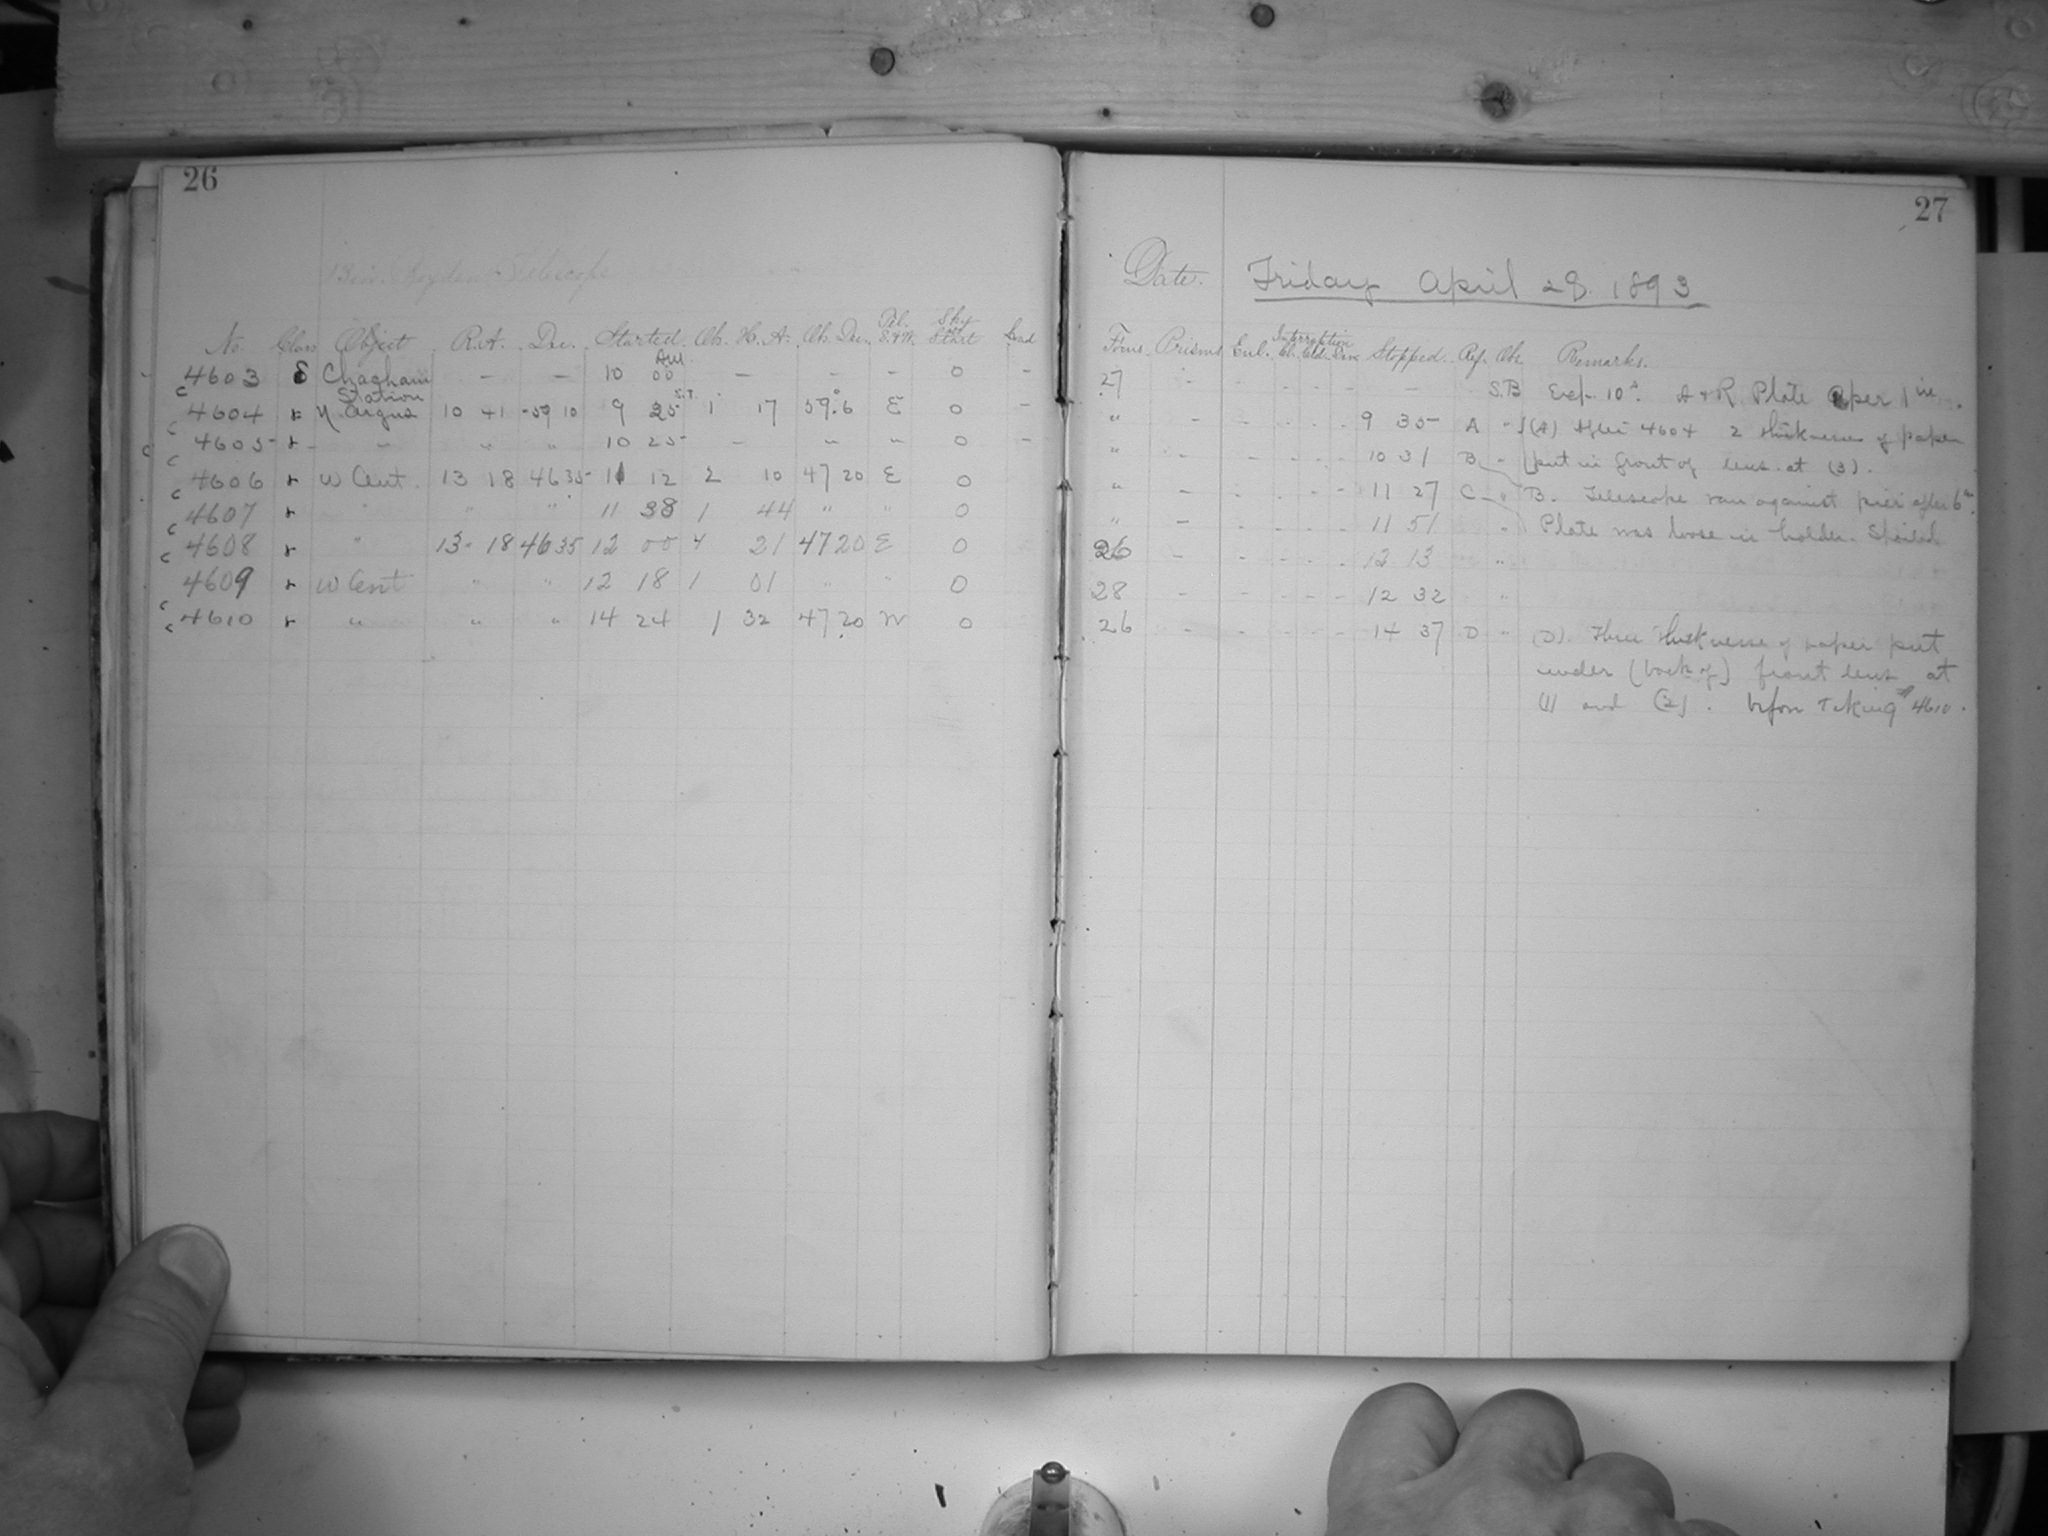 26
13 in. Boyden Telescope
No. Class Object R.A. Dec. Started. Ob. H. A. Ob. Dec. Tel. E. & W. Sky at Start
4603 S Chachani Station — — 10 00 AM — — — 0 -
c 4604 r η Argus 10 41 -59 10 9 25 S.T. 1 17 59°.6 E 0 -
c 4605 r - " " " 10 25 — " " 0 -
c 4606 r ω Cent. 13 18 46 35 11 12 2 10 47 20 E 0
c 4607 r " " " 11 38 1 44 " " 0
c 4608 r " 13 18 46 35 12 00 21 47 20 E 0
c 4609 r ω Cent " " 12 18 1 01 " " 0
c 4610 r " " " 14 24 1 32 47 20 W 0
27
Date. Friday April 28. 1893
Focus Prisms Enl. Interruption Cl. Cld. Stopped. Ref. Obs. Remarks.
27 - - - - - - — S.B Exp. 10s. A & R Plate Aper 1 in.
" - - - - - - 9 35 A " (A) After 4604 2 thicknesses of paper
" - - - - - - 10 31 B " put in front of lens at (3).
" - - - - - - 11 27 C " B. Telescope ran against pier after 6m.
" - - - - - - 11 51 " Plate was loose in holder. Spoiled
26 - - - - - - 12 13 "
28 - - - - - - 12 32 "
26 - - - - - - 14 37 D " (D). Three thickness of paper put
under (back of) front lens at
(1) and (2). before taking 4610.